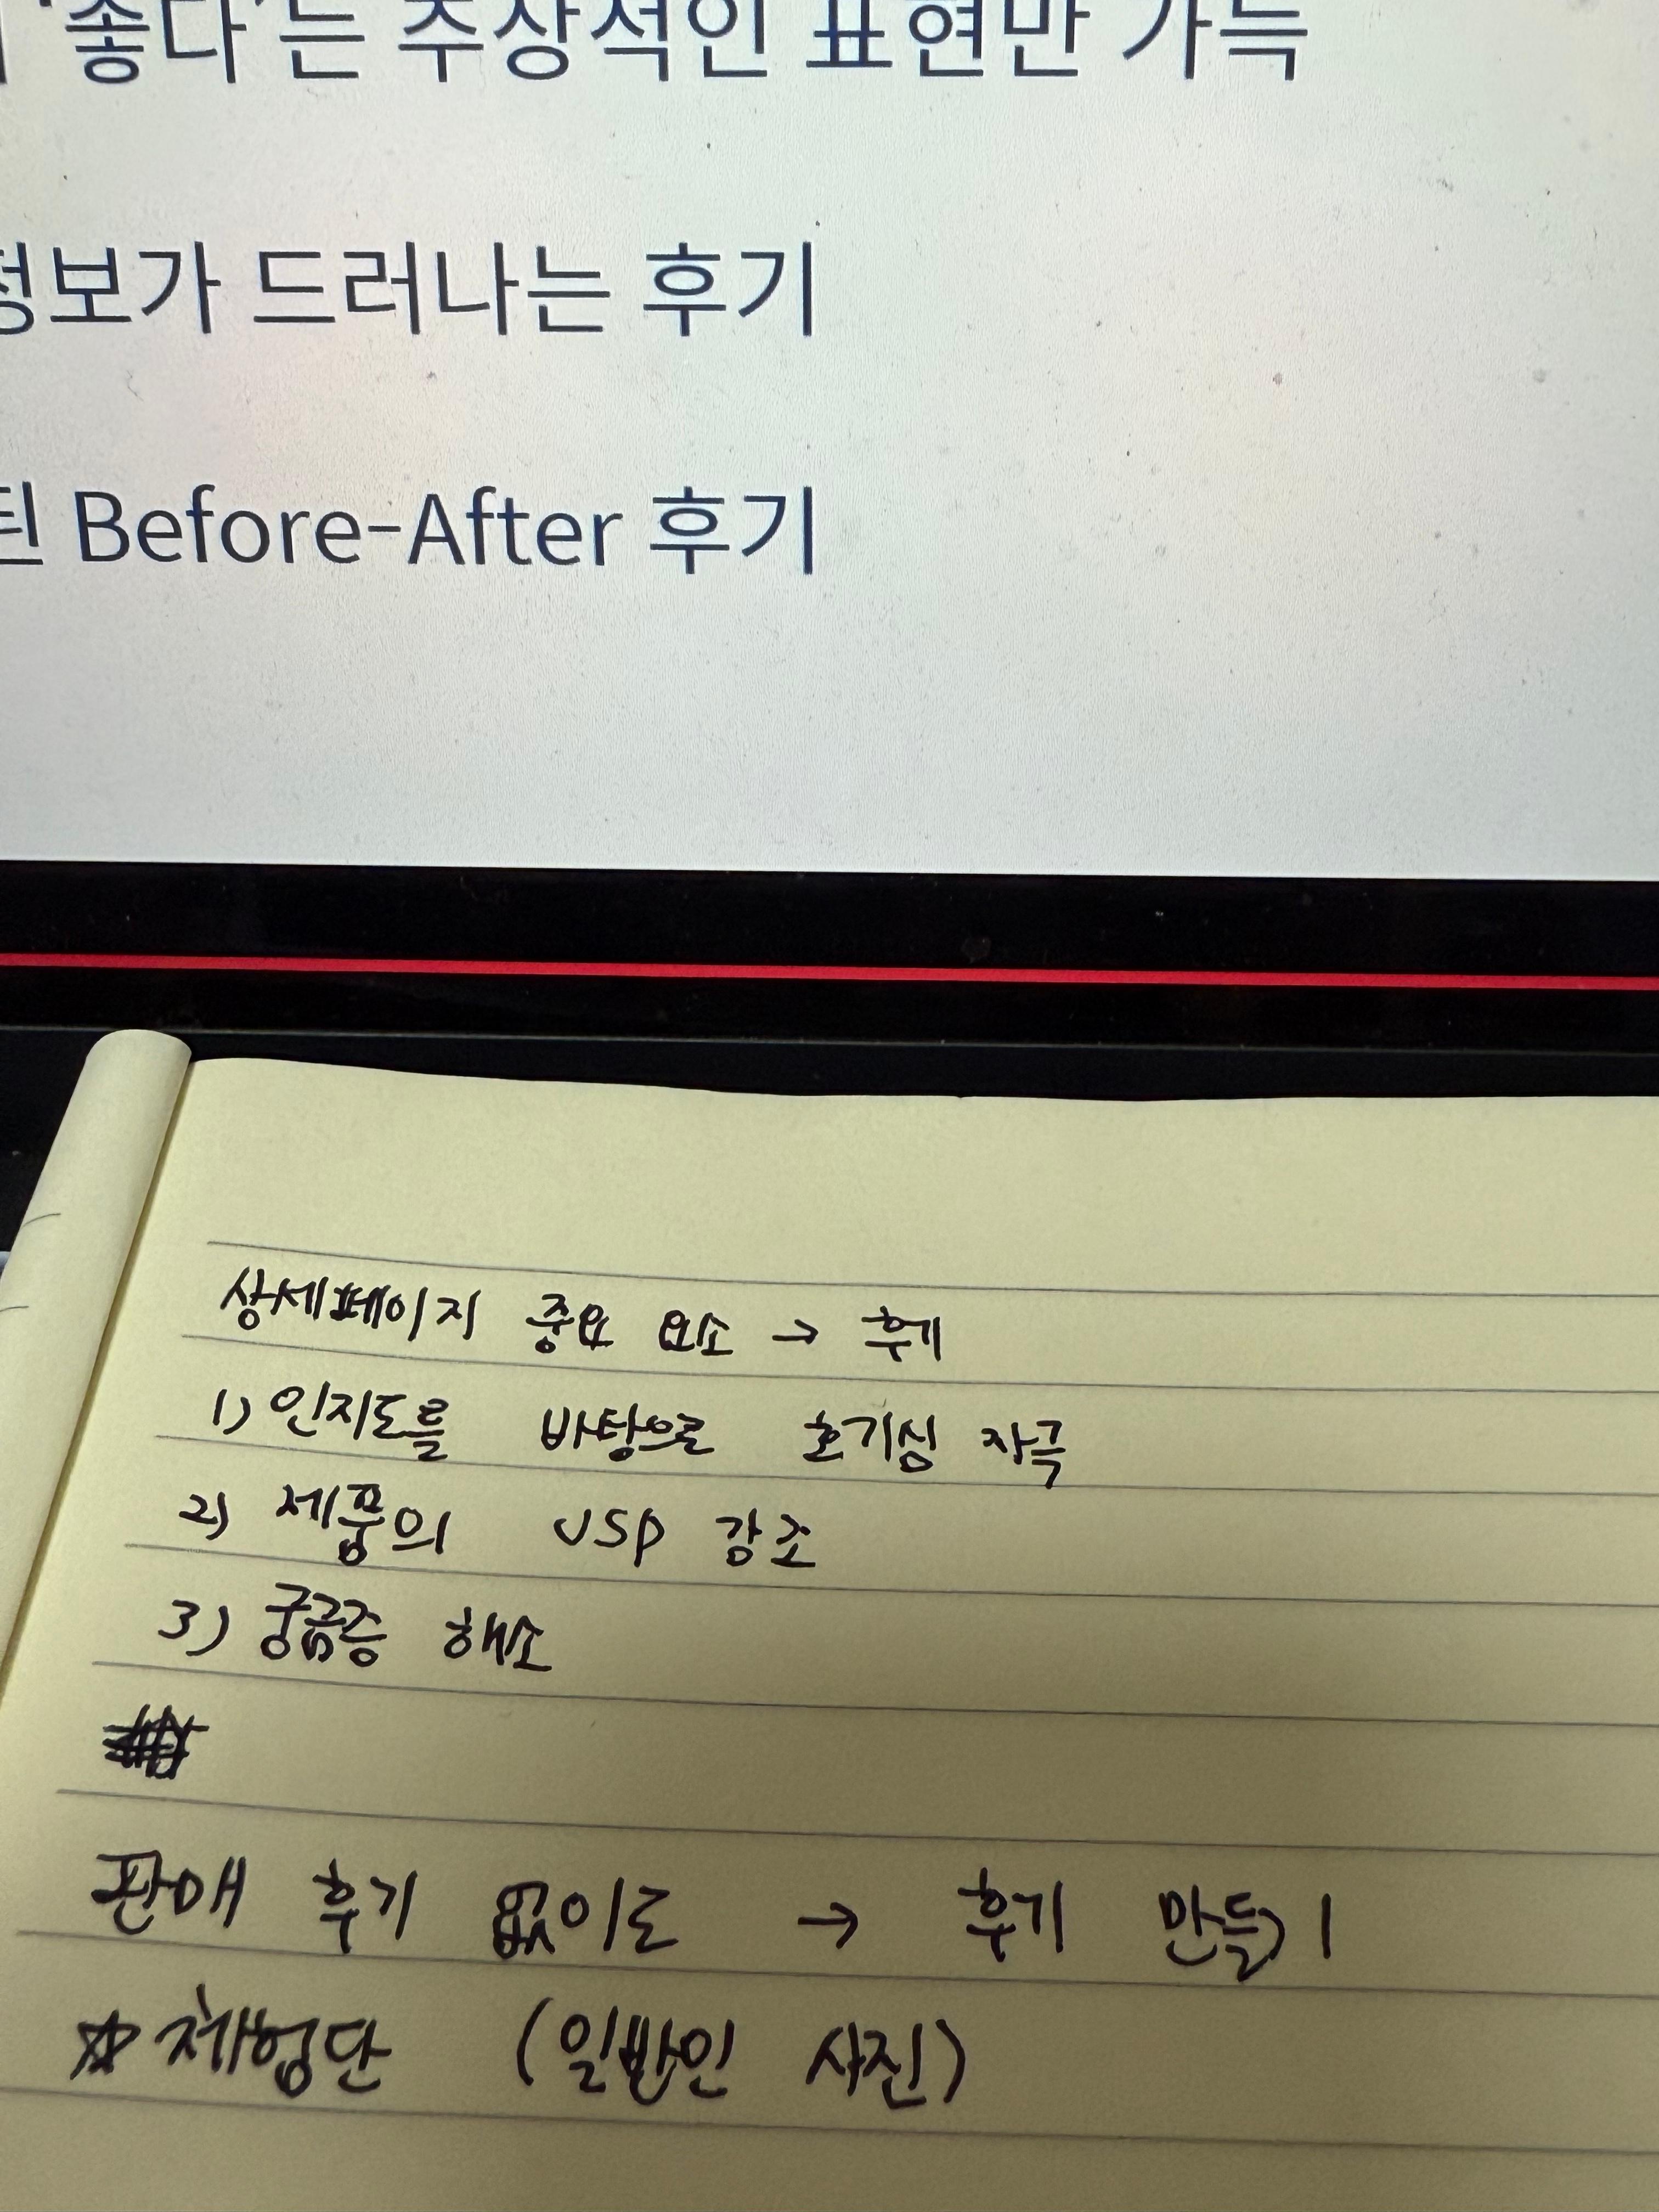 '좋다'는 추상적인 표현만 가득
정보가 드러나는 후기
된 Before-After 후기
상세페이지 중요 요소 → 후기
1) 인지도를 바탕으로 호기심 자극
2) 제품의 USP 강조
3) 궁금증 해소
판매 후기 없이도 → 후기 만들기
☆ 체험단 (일반인 사진)